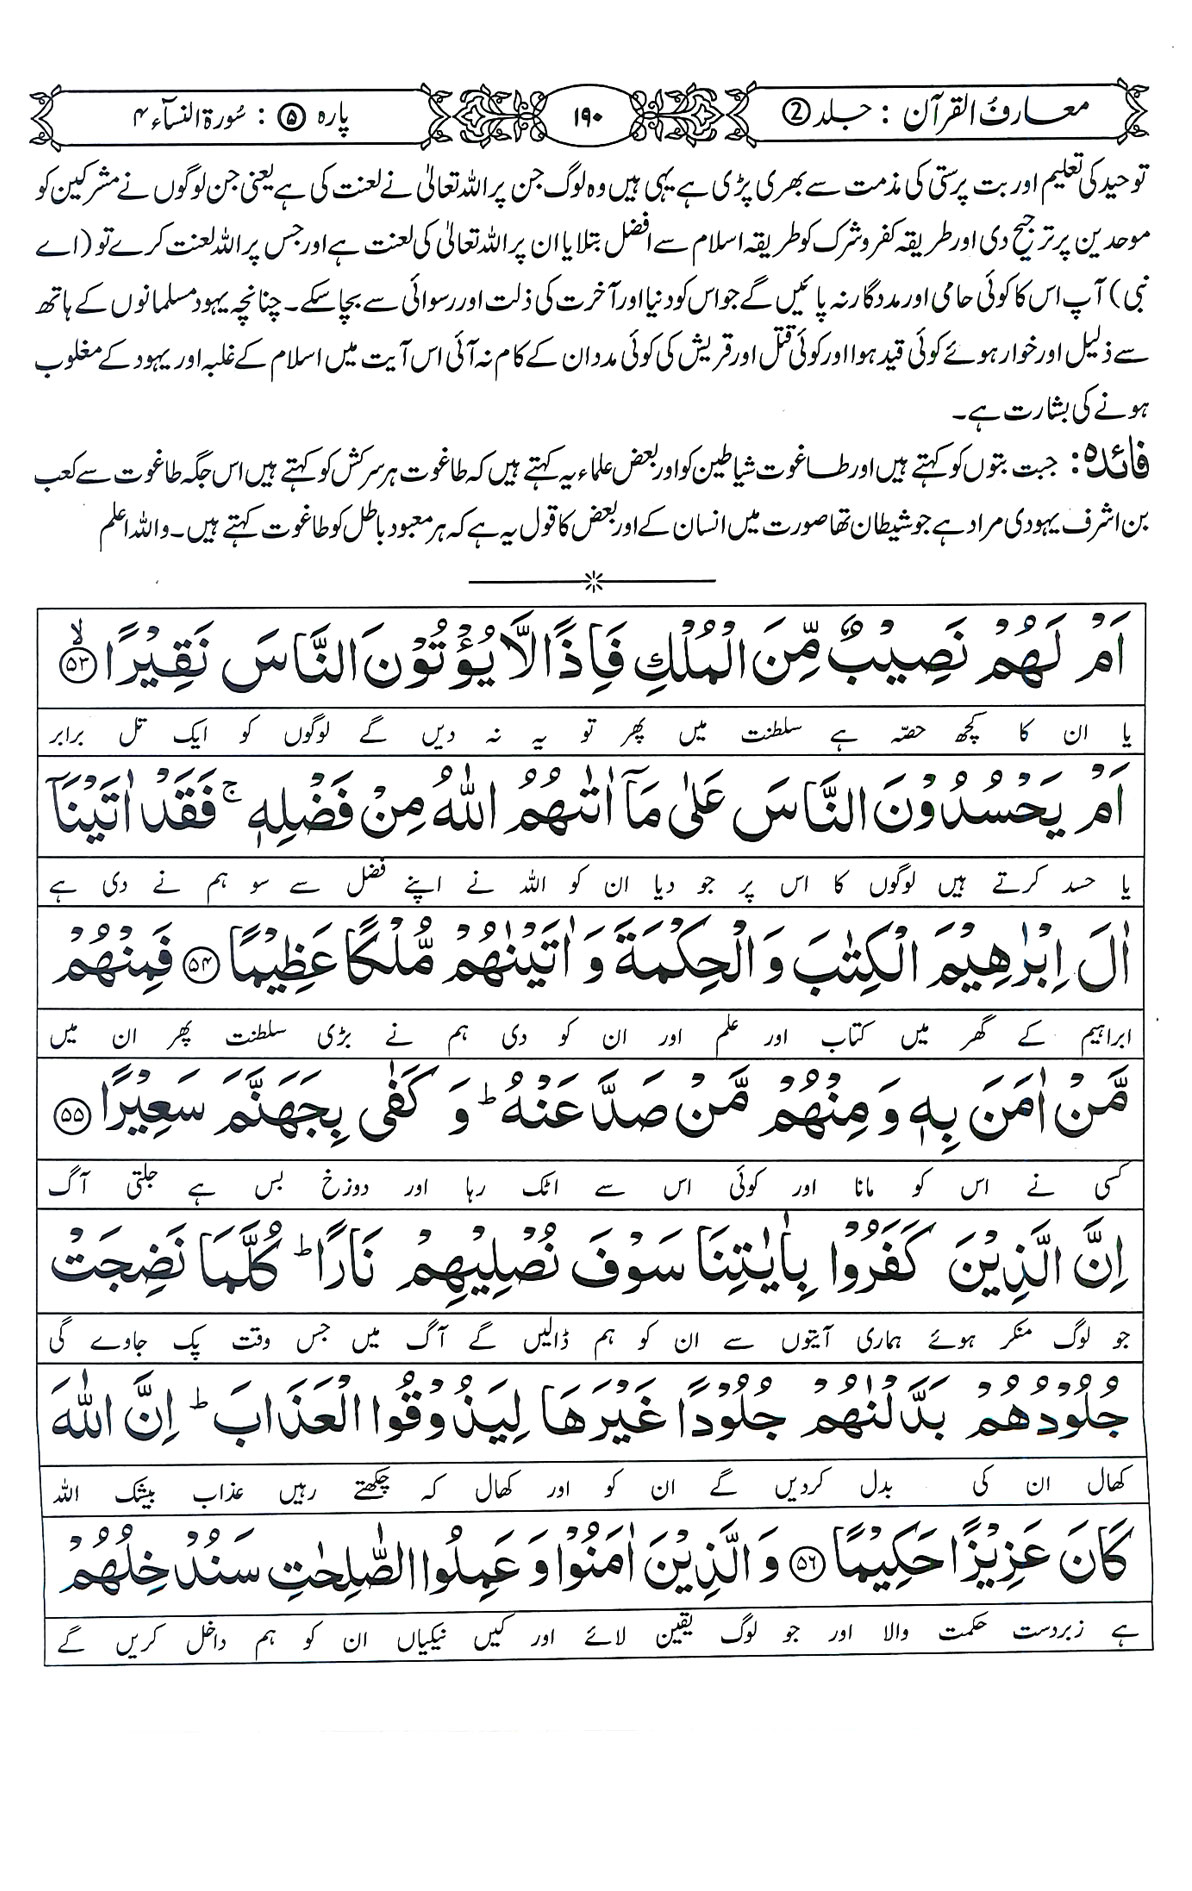 معارف القرآن : جلد ②
۱۹۰
پارہ ⑤ : سُورۃ النسآء ۴
توحید کی تعلیم اور بت پرستی کی مذمت سے بھری پڑی ہے یہی ہیں وہ لوگ جن پر اللہ تعالیٰ نے لعنت کی ہے یعنی جن لوگوں نے مشرکین کو
موحدین پر ترجیح دی اور طریقہ کفر و شرک کو طریقہ اسلام سے افضل بتلایا ان پر اللہ تعالیٰ کی لعنت ہے اور جس پر اللہ لعنت کرے تو (اے
نبی) آپ اس کا کوئی حامی اور مددگار نہ پائیں گے جو اس کو دنیا اور آخرت کی ذلت اور رسوائی سے بچا سکے۔ چنانچہ یہود مسلمانوں کے ہاتھ
سے ذلیل اور خوار ہوئے کوئی قید ہوا اور کوئی قتل اور قریش کی کوئی مدد ان کے کام نہ آئی اس آیت میں اسلام کے غلبہ اور یہود کے مغلوب
ہونے کی بشارت ہے۔
فائدہ: جبت بتوں کو کہتے ہیں اور طاغوت شیاطین کو اور بعض علماء یہ کہتے ہیں کہ طاغوت ہر سرکش کو کہتے ہیں اس جگہ طاغوت سے کعب
بن اشرف یہودی مراد ہے جو شیطان تھا صورت میں انسان کے اور بعض کا قول یہ ہے کہ ہر معبود باطل کو طاغوت کہتے ہیں۔ واللہ اعلم
اَمۡ لَهُمۡ نَصِيۡبٌ مِّنَ الۡمُلۡكِ فَاِذًا لَّا يُؤۡتُوۡنَ النَّاسَ نَقِيۡرًا ۙ‏﴿۵۳﴾
یا ان کا کچھ حصّہ ہے سلطنت میں پھر تو یہ نہ دیں گے لوگوں کو ایک تل برابر
اَمۡ يَحۡسُدُوۡنَ النَّاسَ عَلٰى مَاۤ اٰتٰٮهُمُ اللّٰهُ مِنۡ فَضۡلِهٖ​ ۚ فَقَدۡ اٰتَيۡنَاۤ
یا حسد کرتے ہیں لوگوں کا اس پر جو دیا ان کو اللہ نے اپنے فضل سے سو ہم نے دی ہے
اٰلَ اِبۡرٰهِيۡمَ الۡكِتٰبَ وَالۡحِكۡمَةَ وَاٰتَيۡنٰهُمۡ مُّلۡكًا عَظِيۡمًا ﴿۵۴﴾ فَمِنۡهُمۡ
ابراہیم کے گھر میں کتاب اور علم اور ان کو دی ہم نے بڑی سلطنت پھر ان میں
مَّنۡ اٰمَنَ بِهٖ وَمِنۡهُمۡ مَّنۡ صَدَّ عَنۡهُ​ ؕ وَكَفٰى بِجَهَنَّمَ سَعِيۡرًا ﴿۵۵﴾
کسی نے اس کو مانا اور کوئی اس سے اٹک رہا اور دوزخ بس ہے جلتی آگ
اِنَّ الَّذِيۡنَ كَفَرُوۡا بِاٰيٰتِنَا سَوۡفَ نُصۡلِيۡهِمۡ نَارًا ؕ كُلَّمَا نَضِجَتۡ
جو لوگ منکر ہوئے ہماری آیتوں سے ان کو ہم ڈالیں گے آگ میں جس وقت پک جاوے گی
جُلُوۡدُهُمۡ بَدَّلۡنٰهُمۡ جُلُوۡدًا غَيۡرَهَا لِيَذُوۡقُوا الۡعَذَابَ​ ؕ اِنَّ اللّٰهَ
کھال ان کی بدل کر دیں گے ان کو اور کھال کہ چکھتے رہیں عذاب بیشک اللہ
كَانَ عَزِيۡزًا حَكِيۡمًا ﴿۵۶﴾ وَالَّذِيۡنَ اٰمَنُوۡا وَعَمِلُوا الصّٰلِحٰتِ سَنُدۡخِلُهُمۡ
ہے زبردست حکمت والا اور جو لوگ یقین لائے اور کیں نیکیاں ان کو ہم داخل کریں گے